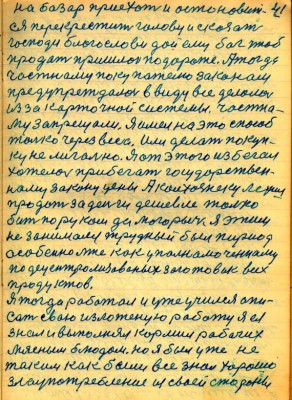 на базар приехот и остоновит- 41
ся перекрестит голову и сказат
господи благослови дой ему бог штоб
продат пришлос подороже. А тогда
частному покупателю законом
предупреждалос ввиду все делалос
изза карточной системы. частно-
му запрещали. Я имел на это способ
толко через веса. Или делат покуп-
ку не лигално. Я от этого избегал
хотелос прибегат государствен-
ному закону цены А колхознеку
продат за денги дешевле толко
бит по рукам да могорыч. я этим
не занималс трудный был период
особенно мне как уполномоченному
по децентролизованых заготовок всех
продуктов.
Я тогда работал и уже училса опи-
сат свою изложеную работу я ел
знал и выполнял кормил рабочих
мясным блюдом. но я был уже не
таким как были все знал хорошо
злоупотребление из своей стороны